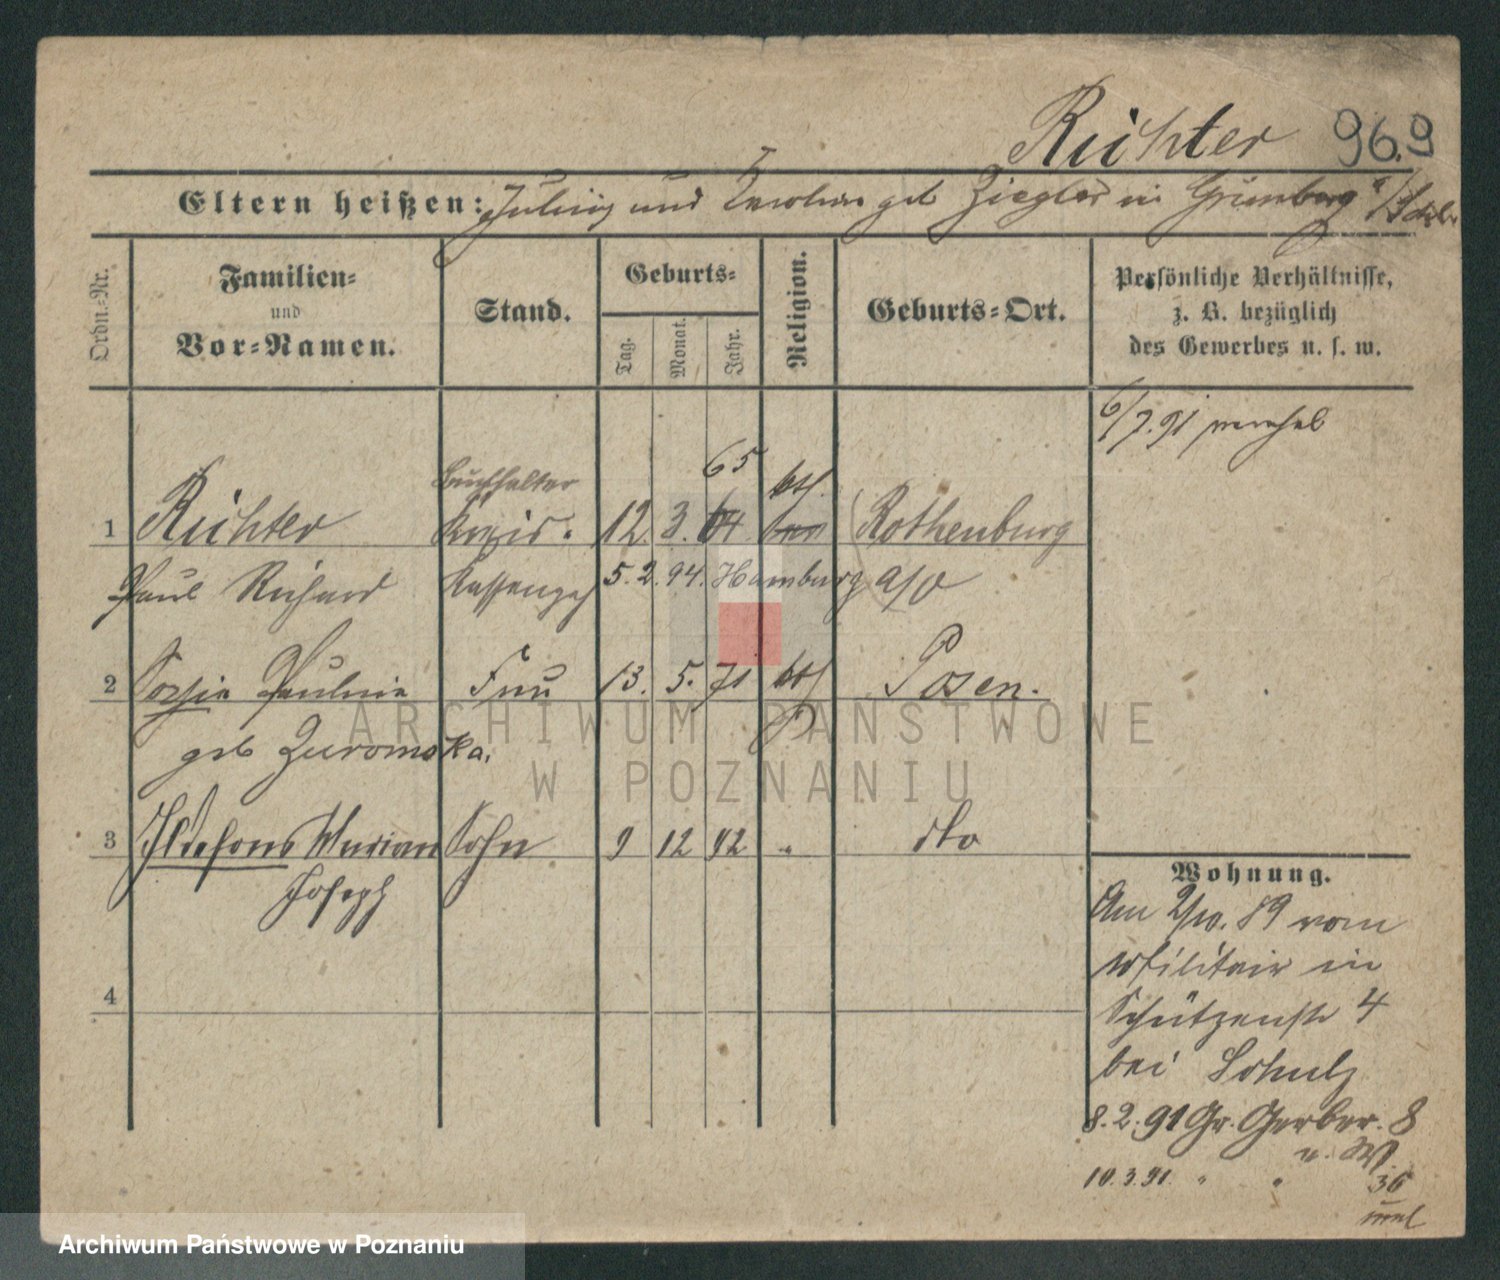 Richter 96.9
Eltern heißen: Julius und Caroline geb Ziegler in Grünberg i/Schl.
Ordn.-Nr.
Familien-
und
Vor-Namen.
Stand.
Geburts-
Tag.
Monat.
Jahr.
Religion.
Geburts-Ort.
Persönliche Verhältnisse,
z. B. bezüglich
des Gewerbes u. s. w.
6/7.91 verehel
Buchhalter 65 kth.
1 Richter Kreis- 12. 3. 64 Rothenburg
Paul Richard Kassengeh 5.2.94. Hamburg a/O
2 Sofie Pauline Frau 13. 5. 71 kth Posen.
geb Zuromska.
3 Ildefons Marian Sohn 9 12 92 " dto
Joseph
4
Wohnung.
Am 2/10. 89 vom
Militair in
Schützenstr 4
bei Schulz
8.2.91 Gr. Gerber. 8
10.3.91 " " 36
ARCHIWUM PAŃSTWOWE
W POZNANIU
Archiwum Państwowe w Poznaniu